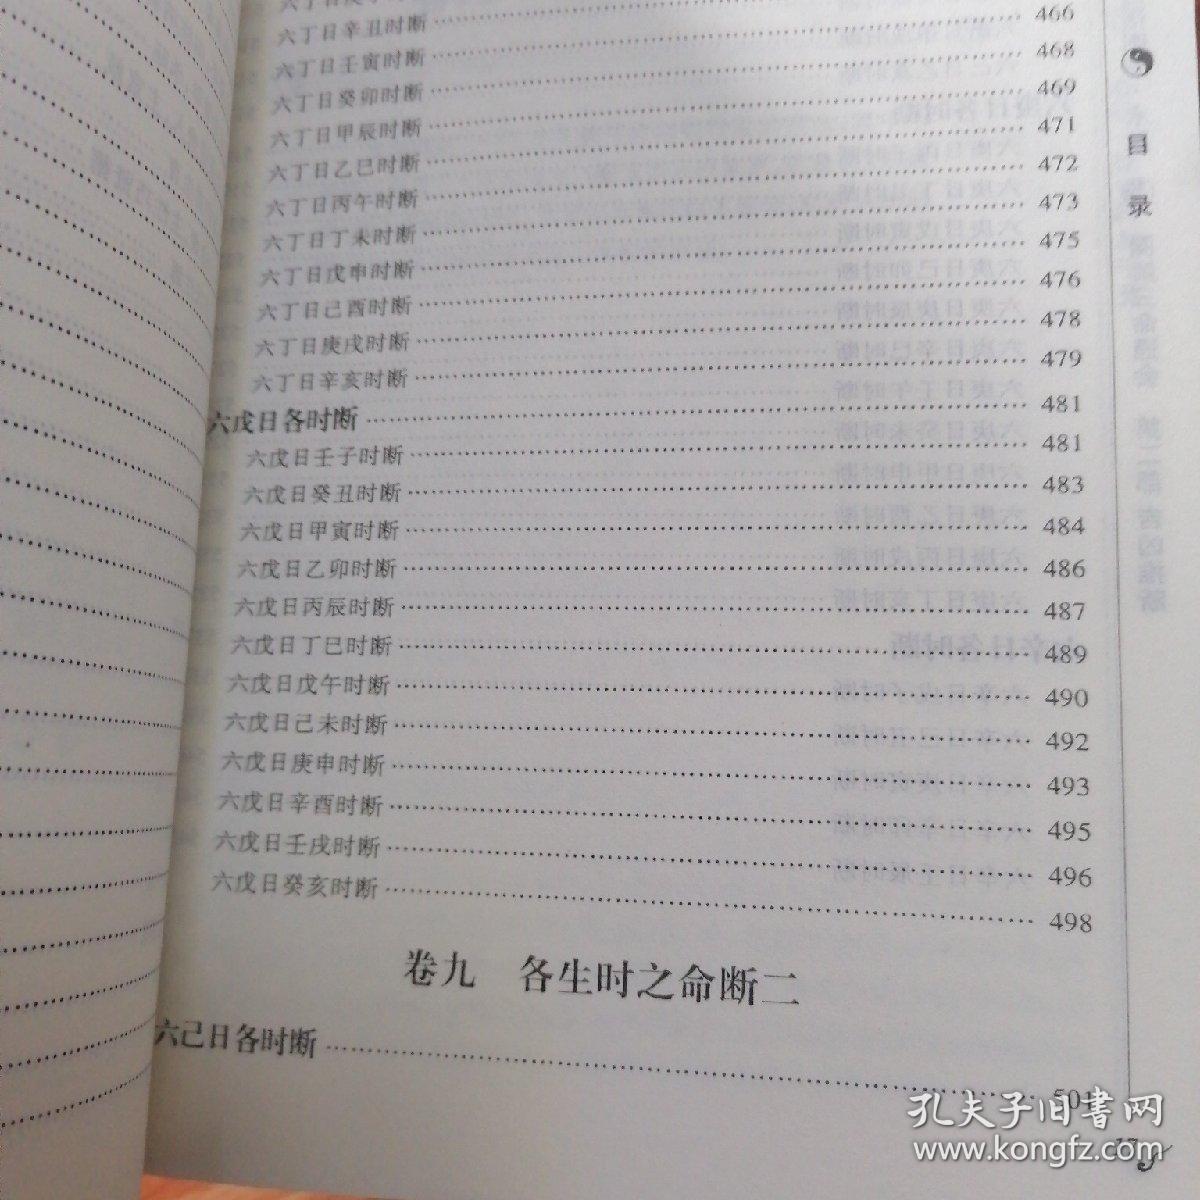 六丁日辛丑时断
六丁日壬寅时断 466
六丁日癸卯时断 468
六丁日甲辰时断 469
六丁日乙巳时断 471
六丁日丙午时断 472
六丁日丁未时断 473
六丁日戊申时断 475
六丁日己酉时断 476
六丁日庚戌时断 478
六丁日辛亥时断 479
六戊日各时断 481
六戊日壬子时断 481
六戊日癸丑时断 483
六戊日甲寅时断 484
六戊日乙卯时断 486
六戊日丙辰时断 487
六戊日丁巳时断 489
六戊日戊午时断 490
六戊日己未时断 492
六戊日庚申时断 493
六戊日辛酉时断 495
六戊日壬戌时断 496
六戊日癸亥时断 498
卷九 各生时之命断二
六己日各时断 501
目录
孔夫子旧书网
www.kongfz.com